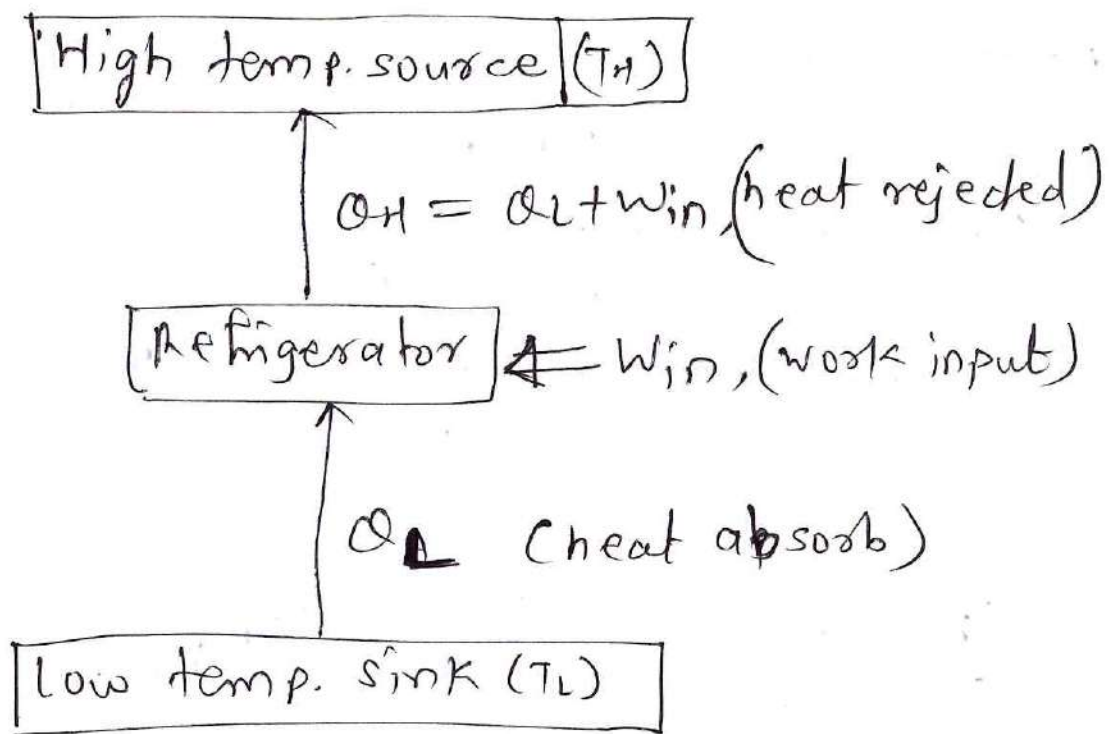 High temp. source (TH)
QH = QL + Win, (heat rejected)
Refrigerator
Win, (work input)
QL (heat absorb)
Low temp. sink (TL)